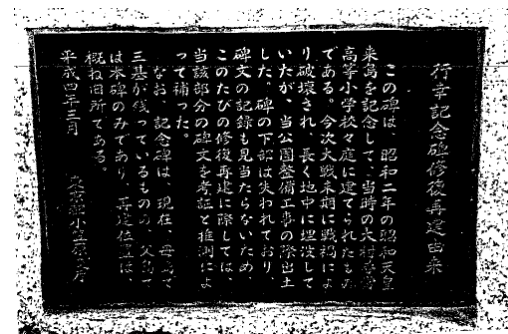 行幸記念碑修復再建由来
この碑は、昭和二年の昭和天皇
来島を記念して、当時の大村尋常
高等小学校々庭に建てられたもの
である。今次大戦末期に戦禍によ
り破壊され、長く地中に埋没して
いたが、当公園整備工事の際出土
した。碑の下部は失われており、
碑文の記録も見当たらないため、
このたびの修復再建に際しては、
当該部分の碑文を考証と推測によ
って補った。
なお、記念碑は、現在、母島で
三基が残っているものの、父島で
は本碑のみであり、再建位置は、
概ね旧所である。
平成四年三月
東京都小笠原支庁